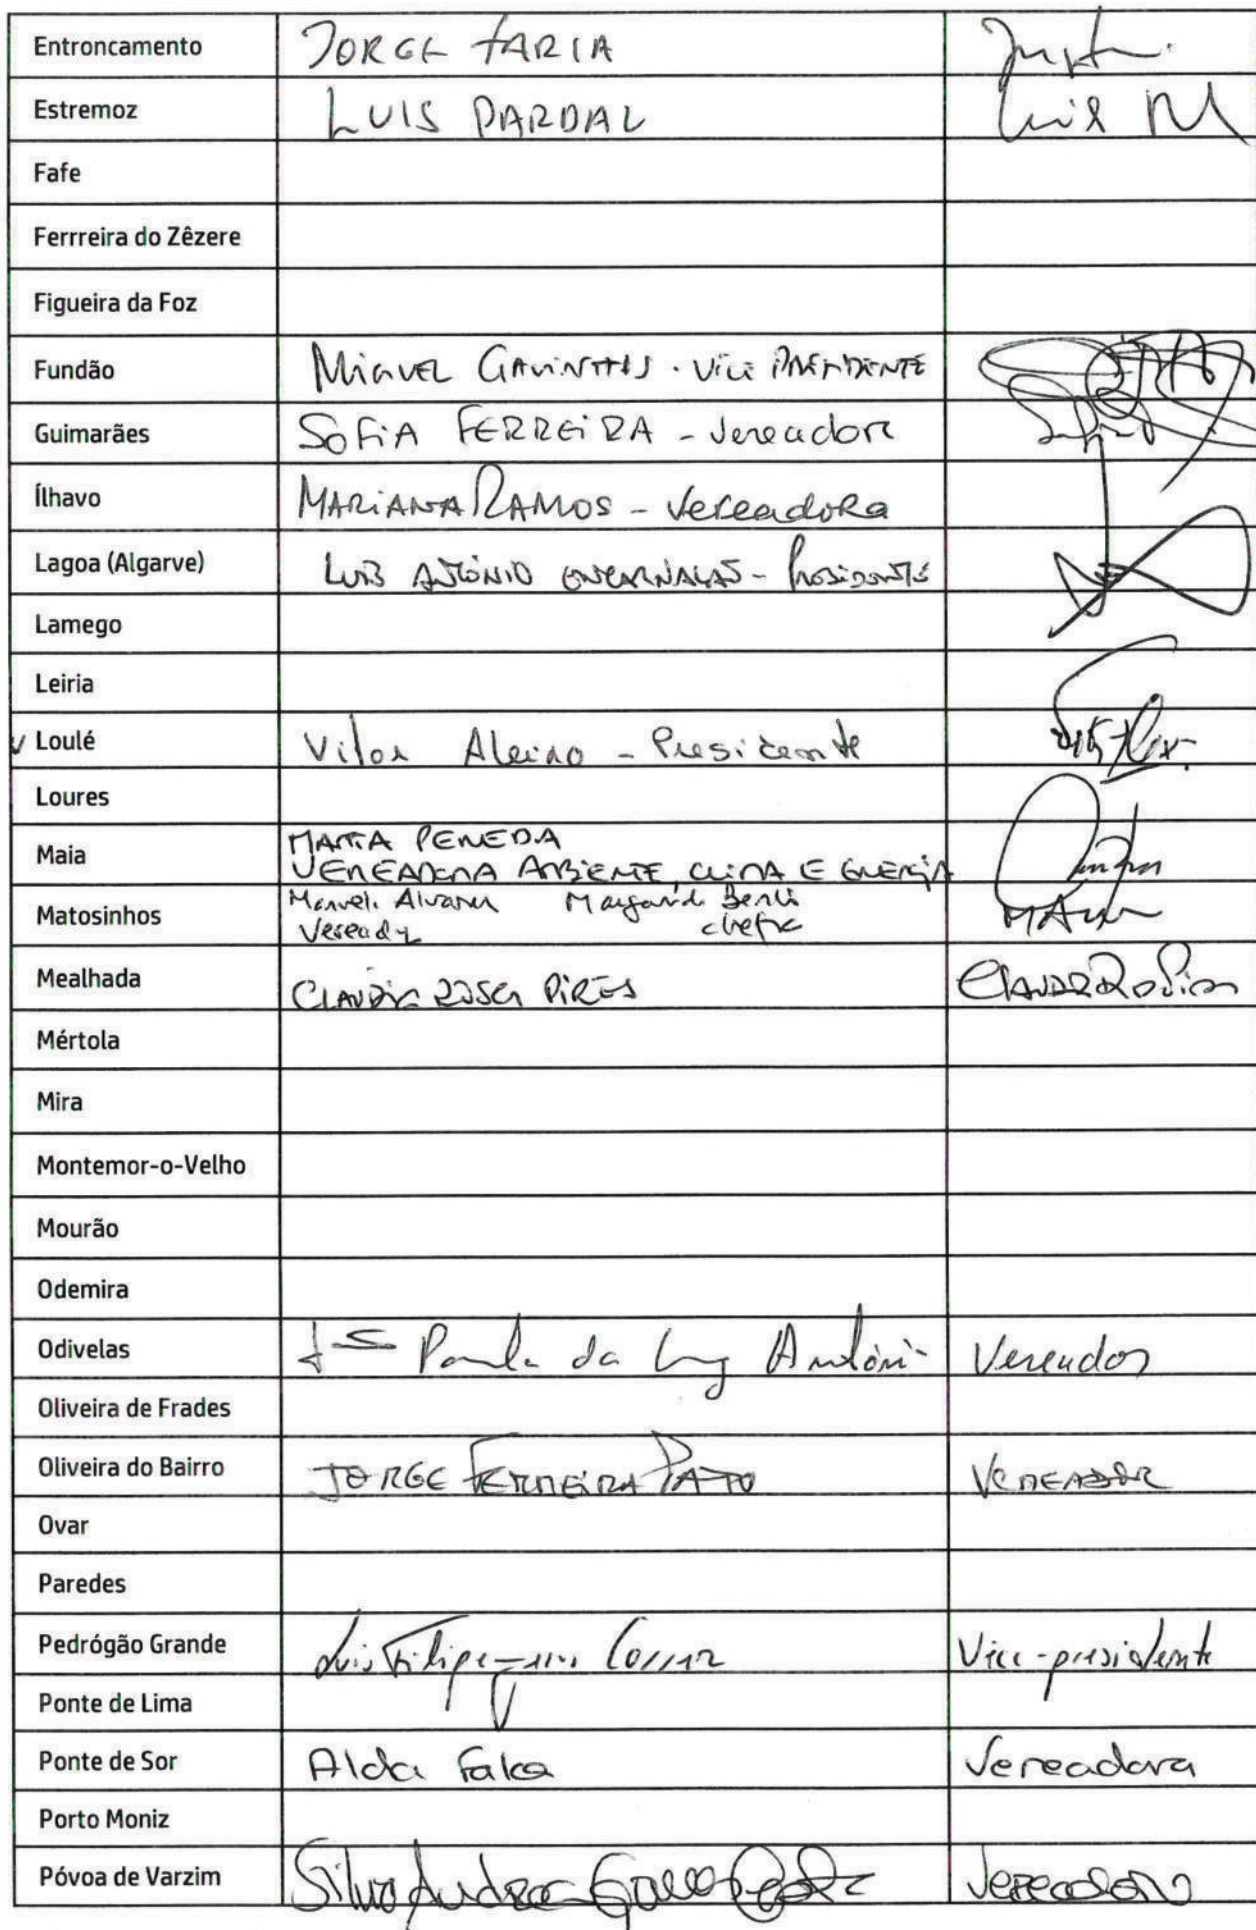 Entroncamento JORGE FARIA
Estremoz LUIS PARDAL Luis
Fafe
Ferrreira do Zêzere
Figueira da Foz
Fundão MIGUEL GAVINHOS - VICE PRESIDENTE
Guimarães SOFIA FERREIRA - Vereadora
Ílhavo MARIANA RAMOS - Vereadora
Lagoa (Algarve) LUIS ANTÓNIO ENCARNAÇÃO - PRESIDENTE
Lamego
Leiria
Loulé Vitor Aleixo - Presidente
Loures
Maia MARTA PENEDA
VEREADORA AMBIENTE, CLIMA E ENERGIA
Matosinhos
Mealhada PIRES
Mértola
Mira
Montemor-o-Velho
Mourão
Odemira
Odivelas Vereador
Oliveira de Frades
Oliveira do Bairro JORGE FERREIRA PATO VEREADOR
Ovar
Paredes
Pedrógão Grande Luis Filipe Vice-presidente
Ponte de Lima
Ponte de Sor Alda Falca Vereadora
Porto Moniz
Póvoa de Varzim Vereadora